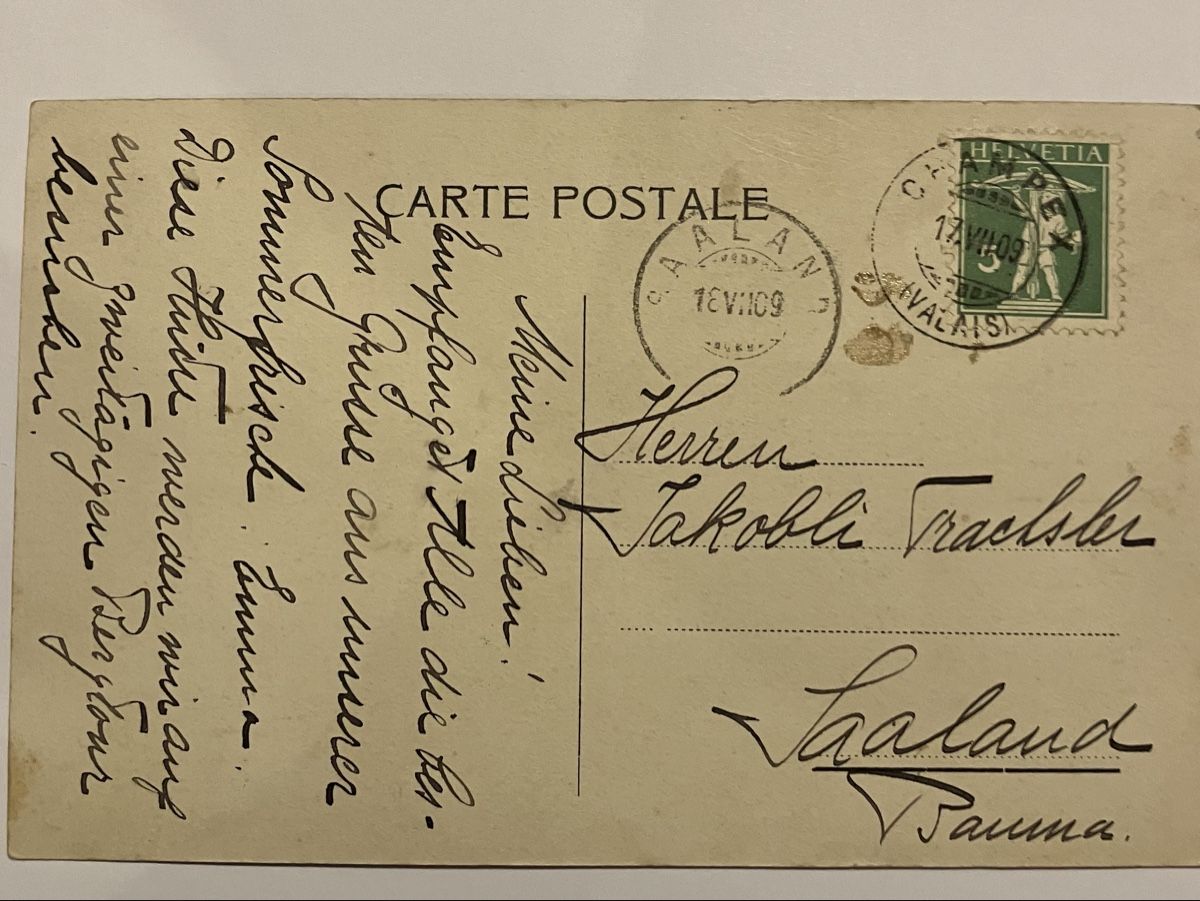 CARTE POSTALE
HELVETIA
5
CHAMPEX
17.VII.09
(VALAIS)
SAALAND
18.VII.09
Meine Lieben!
Empfanget Alle die bes-
ten Grüsse aus unserer
Sommerfrische. Emma.
Diese Hütte werden wir auf
einer zweitägigen Bergtour
besuchen.
Herren
Jakobli Trachsler
Saaland
Bauma.